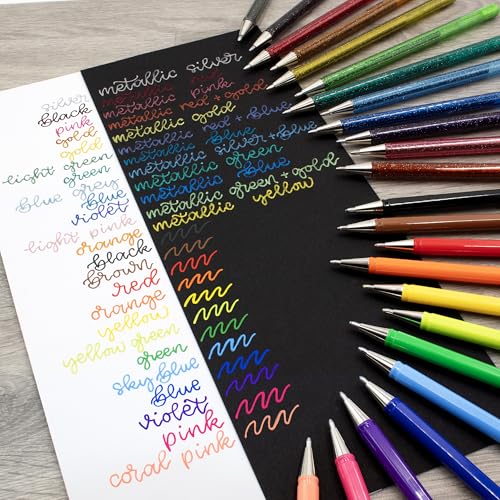 silver metallic silver
black metallic red
pink metallic pink
gold metallic red + gold
gold metallic gold
light green metallic red + blue
green metallic blue
blue grey metallic silver + blue
blue metallic green
violet metallic blue
light pink metallic green + gold
orange metallic yellow
black
brown
red
orange
yellow
yellow green
green
sky blue
blue
violet
pink
coral pink